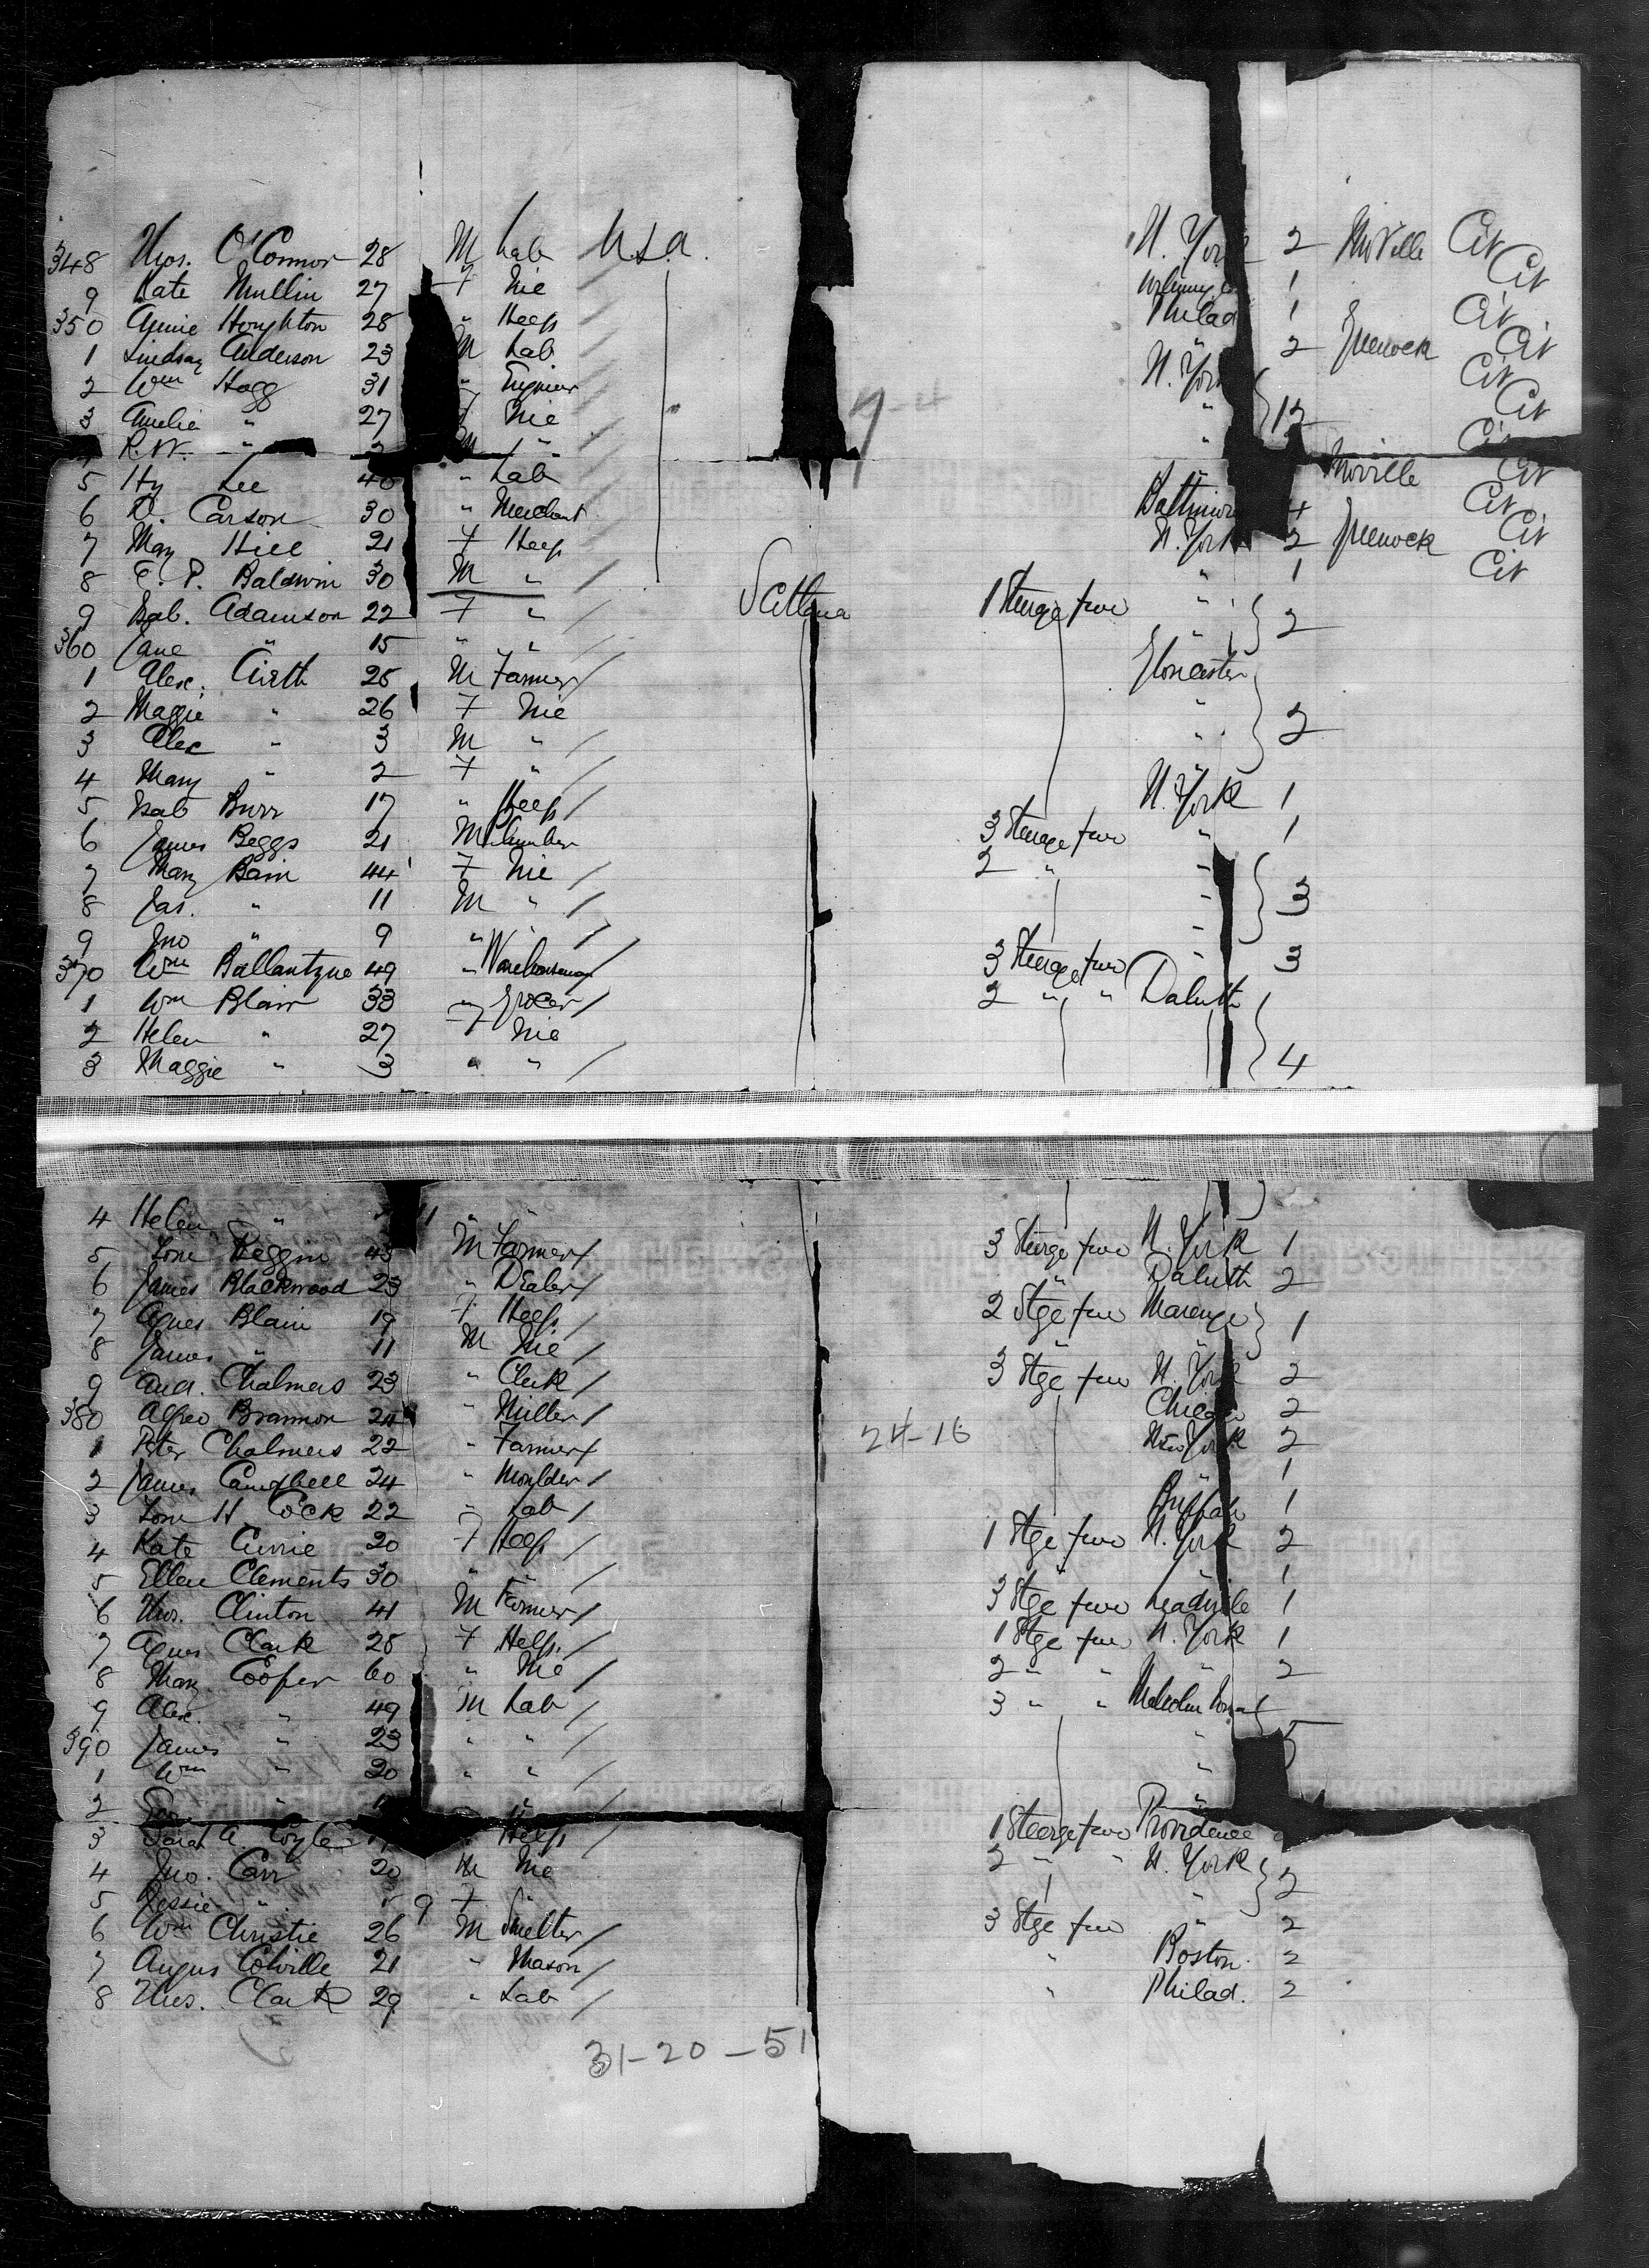 348 Thos. O'Connor 28 M Lab U.S.A. N. York 2 Moville Cit
9 Kate Mullin 27 F Nie 1 Cit
350 Annie Houghton 28 " Help Philad 1 Cit
1 Lindsay Anderson 23 M Lab " 2 Greenock Cit
2 Wm Hogg 31 " Engineer N. York Cit
3 Amelia " 27 Nie " 12 Cit
R.W. " M " " Cit
5 Hy Lee 40 " Lab " Moville Cit
6 D. Carson 30 " Merchant Baltimore 4 Cit
7 May Hill 21 F Help N. York 2 Greenock Cit
8 E. P. Baldwin 30 M " " 1 Cit
9 Isab. Adamson 22 F " Scotland 1 Steerage fwd " 2
360 Jane " 15 " " "
1 Alex. 25 M Farmer Gloucester
2 Maggie " 26 F Nie " 2
3 Alex " 3 M " "
4 Mary " 2 F " "
5 Isab Burr 17 " Help N. York 1
6 James Beggs 21 M Plumber 3 Steerage fwd " 1
7 Mary Bain 44 F Nie 2 " "
8 Jas. " 11 M " " 3
9 Jno " 9 " " "
370 Wm Ballantyne 49 " Warehouseman 3 Steerage fwd " 3
1 Wm Blair 33 " Grocer 2 " " Daluth
2 Helen " 27 F Nie
3 Maggie " 3 " " 4
4 Helen " " "
5 Tom 43 M Farmer 3 Steerge fwd N. York 1
6 James Blackwood 23 " Dealer " Daluth 2
7 Agnes Blain 19 F Help 2 Stge fwd 1
8 James " 11 M Nie "
9 And. Chalmers 23 " Clerk 3 Stge fwd N. York 2
380 Alfred Brannon 24 " Miller Chicago 2
24-16
1 Peter Chalmers 22 " Farmer New York 2
2 James Campbell 24 " Moulder " 1
3 Tom H. Cock 22 " Lab Buffalo 1
4 Kate Currie 20 F Help 1 Stge fwd N. York 2
5 Ellen Clements 30 " " " " 1
6 Thos. Clinton 41 M Farmer 3 Stge fwd Leadville 1
7 Agnes Clark 25 F Help. 1 Stge fwd N. York 1
8 Mary Cooper 60 " Nie 2 " " " 2
9 Alex. " 49 M Lab 3 " " Malcolm
390 James " 23 " " " 5
1 Wm " 20 " " "
2 Geo. " " " "
3 Sarah A. Coyle " Help 1 Steerge fwd Providence
4 Jno. Carr 20 M Nie 2 " " N. York 2
5 Jessie " 9 F " "
6 Wm Christie 26 M Smelter 3 Stge fwd " 2
7 Angus Colville 21 " Mason " Boston 2
8 Thos. Clark 29 " Lab " Philad. 2
31-20-51